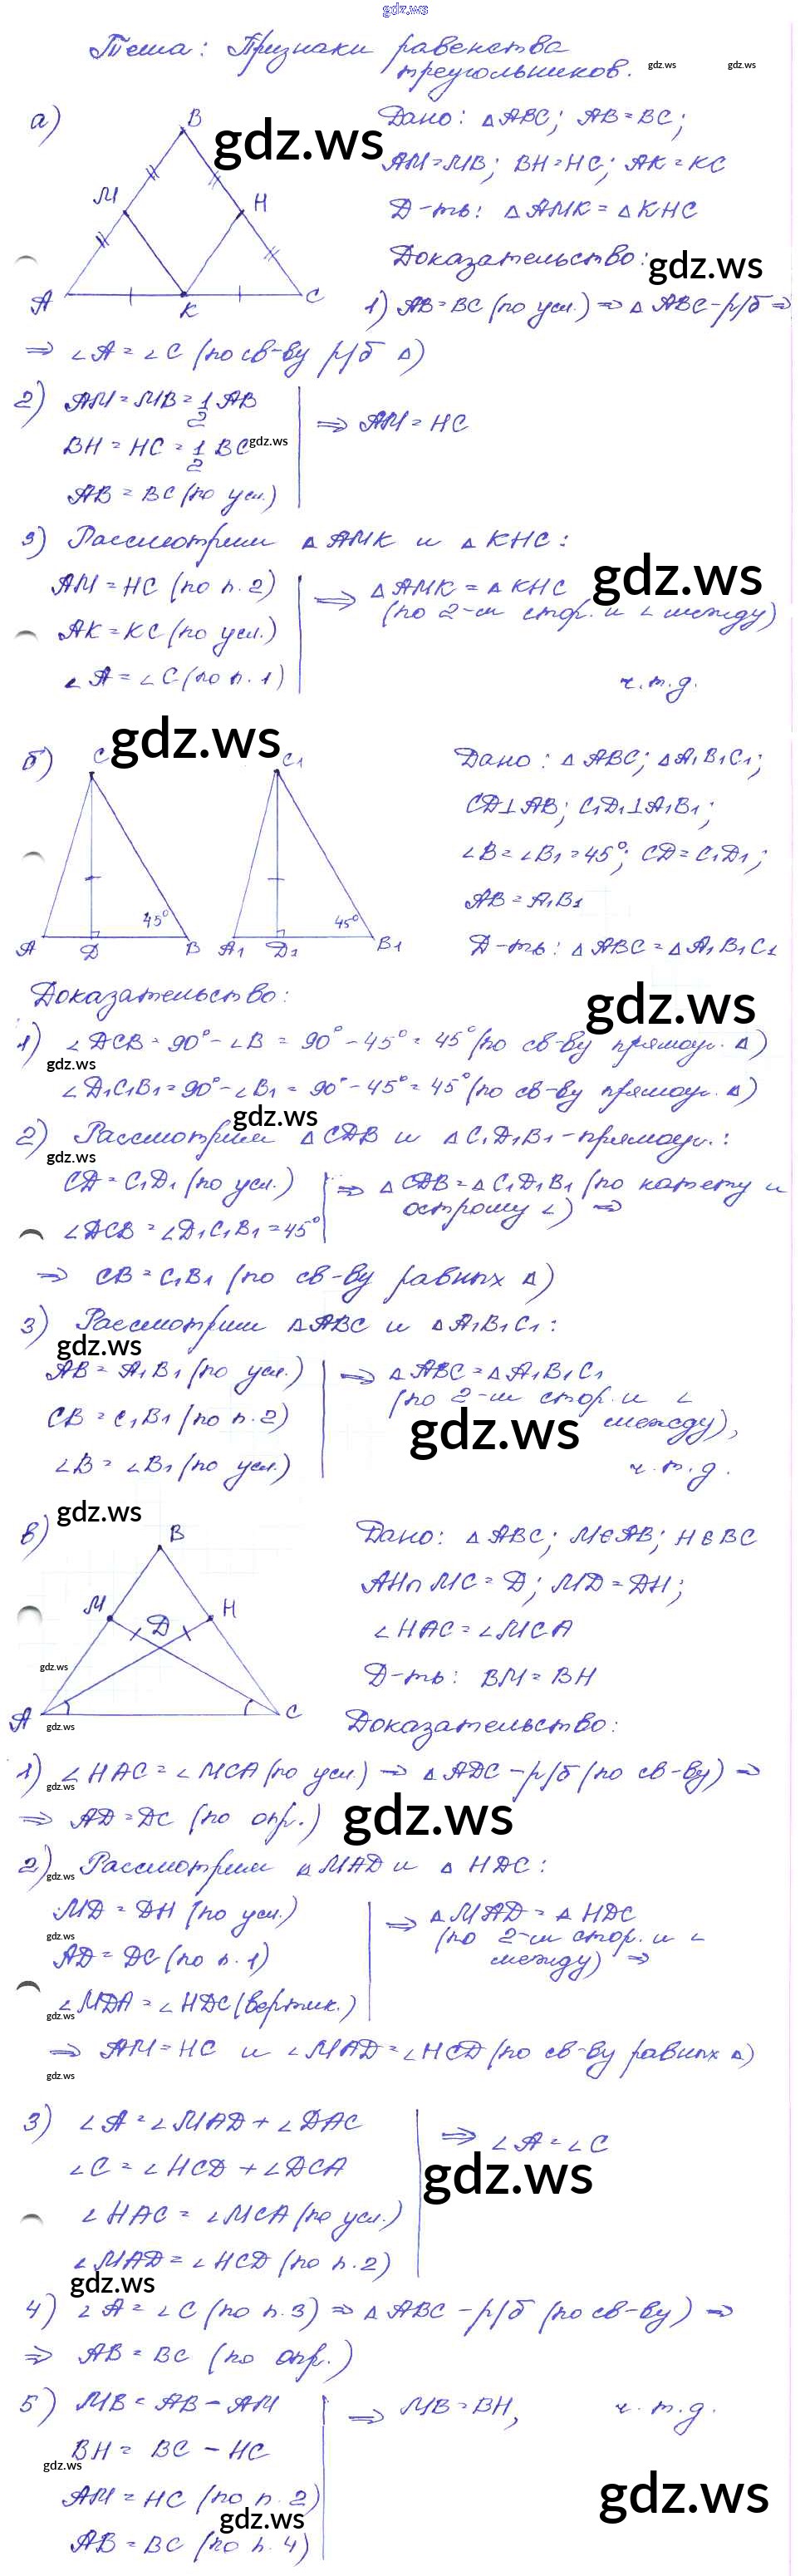 gdz.ws
Тема: Признаки равенства
треугольников.
gdz.ws gdz.ws
а)
B
M
H
A
K
C
gdz.ws
Дано: △ABC; AB=BC;
AM=MB; BH=HC; AK=KC
Д-ть: △AMK=△KHC
Доказательство:
gdz.ws
1) AB=BC (по усл.) ⇒ △ABC-р/б ⇒
⇒ ∠A=∠C (по св-ву р/б △)
2) AM=MB=1/2 AB
BH=HC=1/2 BC
gdz.ws
AB=BC (по усл.)
⇒ AM=HC
3) Рассмотрим △AMK и △KHC:
AM=HC (по п.2)
AK=KC (по усл.)
∠A=∠C (по п.1)
⇒ △AMK=△KHC
gdz.ws
(по 2-м стор. и ∠ между)
ч.т.д.
б)
C
gdz.ws
C1
A
D
B
45°
A1
D1
B1
45°
Дано: △ABC; △A1B1C1;
CD⊥AB; C1D1⊥A1B1;
∠B=∠B1=45°; CD=C1D1;
AB=A1B1
Д-ть: △ABC=△A1B1C1
Доказательство:
gdz.ws
1) ∠DCB=90°-∠B=90°-45°=45° (по св-ву прямоуг. △)
gdz.ws
∠D1C1B1=90°-∠B1=90°-45°=45° (по св-ву прямоуг. △)
gdz.ws
2) Рассмотрим △CDB и △C1D1B1-прямоуг.:
gdz.ws
CD=C1D1 (по усл.)
∠DCB=∠D1C1B1=45°
⇒ △CDB=△C1D1B1 (по катету и
острому ∠) ⇒
⇒ CB=C1B1 (по св-ву равных △)
3) Рассмотрим △ABC и △A1B1C1:
gdz.ws
AB=A1B1 (по усл.)
CB=C1B1 (по п.2)
∠B=∠B1 (по усл.)
⇒ △ABC=△A1B1C1
(по 2-м стор. и ∠
между),
gdz.ws
ч.т.д.
gdz.ws
в)
B
M
D
H
A
C
gdz.ws
gdz.ws
Дано: △ABC; M∈AB; H∈BC
AH∩MC=D; MD=DH;
∠HAC=∠MCA
Д-ть: BM=BH
Доказательство:
1) ∠HAC=∠MCA (по усл.) ⇒ △ADC-р/б (по св-ву) ⇒
gdz.ws
⇒ AD=DC (по опр.)
gdz.ws
2) Рассмотрим △MAD и △HDC:
gdz.ws
MD=DH (по усл.)
gdz.ws
AD=DC (по п.1)
∠MDA=∠HDC (вертик.)
gdz.ws
⇒ △MAD=△HDC
(по 2-м стор. и ∠
между) ⇒
⇒ AM=HC и ∠MAD=∠HCD (по св-ву равных △)
gdz.ws
3) ∠A=∠MAD+∠DAC
∠C=∠HCD+∠DCA
∠HAC=∠MCA (по усл.)
∠MAD=∠HCD (по п.2)
⇒ ∠A=∠C
gdz.ws
gdz.ws
4) ∠A=∠C (по п.3) ⇒ △ABC-р/б (по св-ву) ⇒
⇒ AB=BC (по опр.)
5) MB=AB-AM
BH=BC-HC
gdz.ws
AM=HC (по п.2)
gdz.ws
AB=BC (по п.4)
⇒ MB=BH,
ч.т.д.
gdz.ws